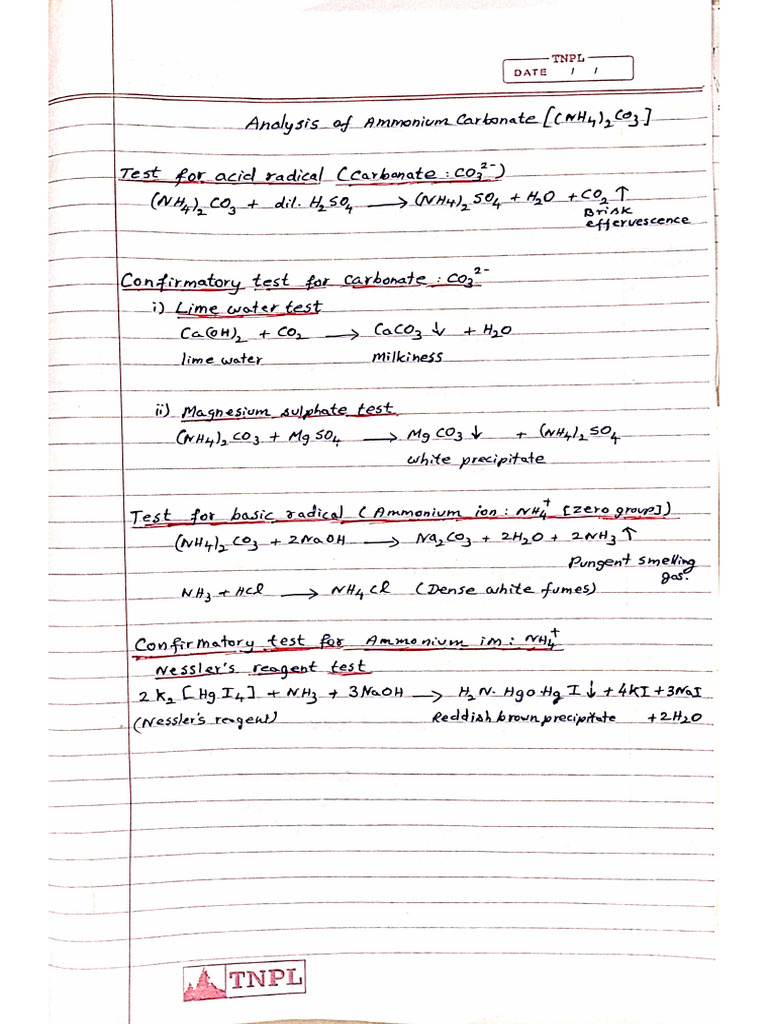 TNPL
DATE / /
Analysis of Ammonium Carbonate [(NH4)2CO3]
Test for acid radical (Carbonate : CO3²⁻)
(NH4)2CO3 + dil. H2SO4 ⟶ (NH4)2SO4 + H2O + CO2↑
Brisk
effervescence
Confirmatory test for carbonate : CO3²⁻
i) Lime water test
Ca(OH)2 + CO2 ⟶ CaCO3↓ + H2O
lime water Milkiness
ii) Magnesium sulphate test
(NH4)2CO3 + MgSO4 ⟶ MgCO3↓ + (NH4)2SO4
white precipitate
Test for basic radical (Ammonium ion : NH4⁺ [zero group])
(NH4)2CO3 + 2NaOH ⟶ Na2CO3 + 2H2O + 2NH3↑
Pungent smelling
gas.
NH3 + HCl ⟶ NH4Cl (Dense white fumes)
Confirmatory test for Ammonium im : NH4⁺
Nessler's reagent test
2K2[HgI4] + NH3 + 3NaOH ⟶ H2N.HgO.HgI↓ + 4KI + 3NaI
(Nessler's reagent) Reddish brown precipitate + 2H2O
TNPL